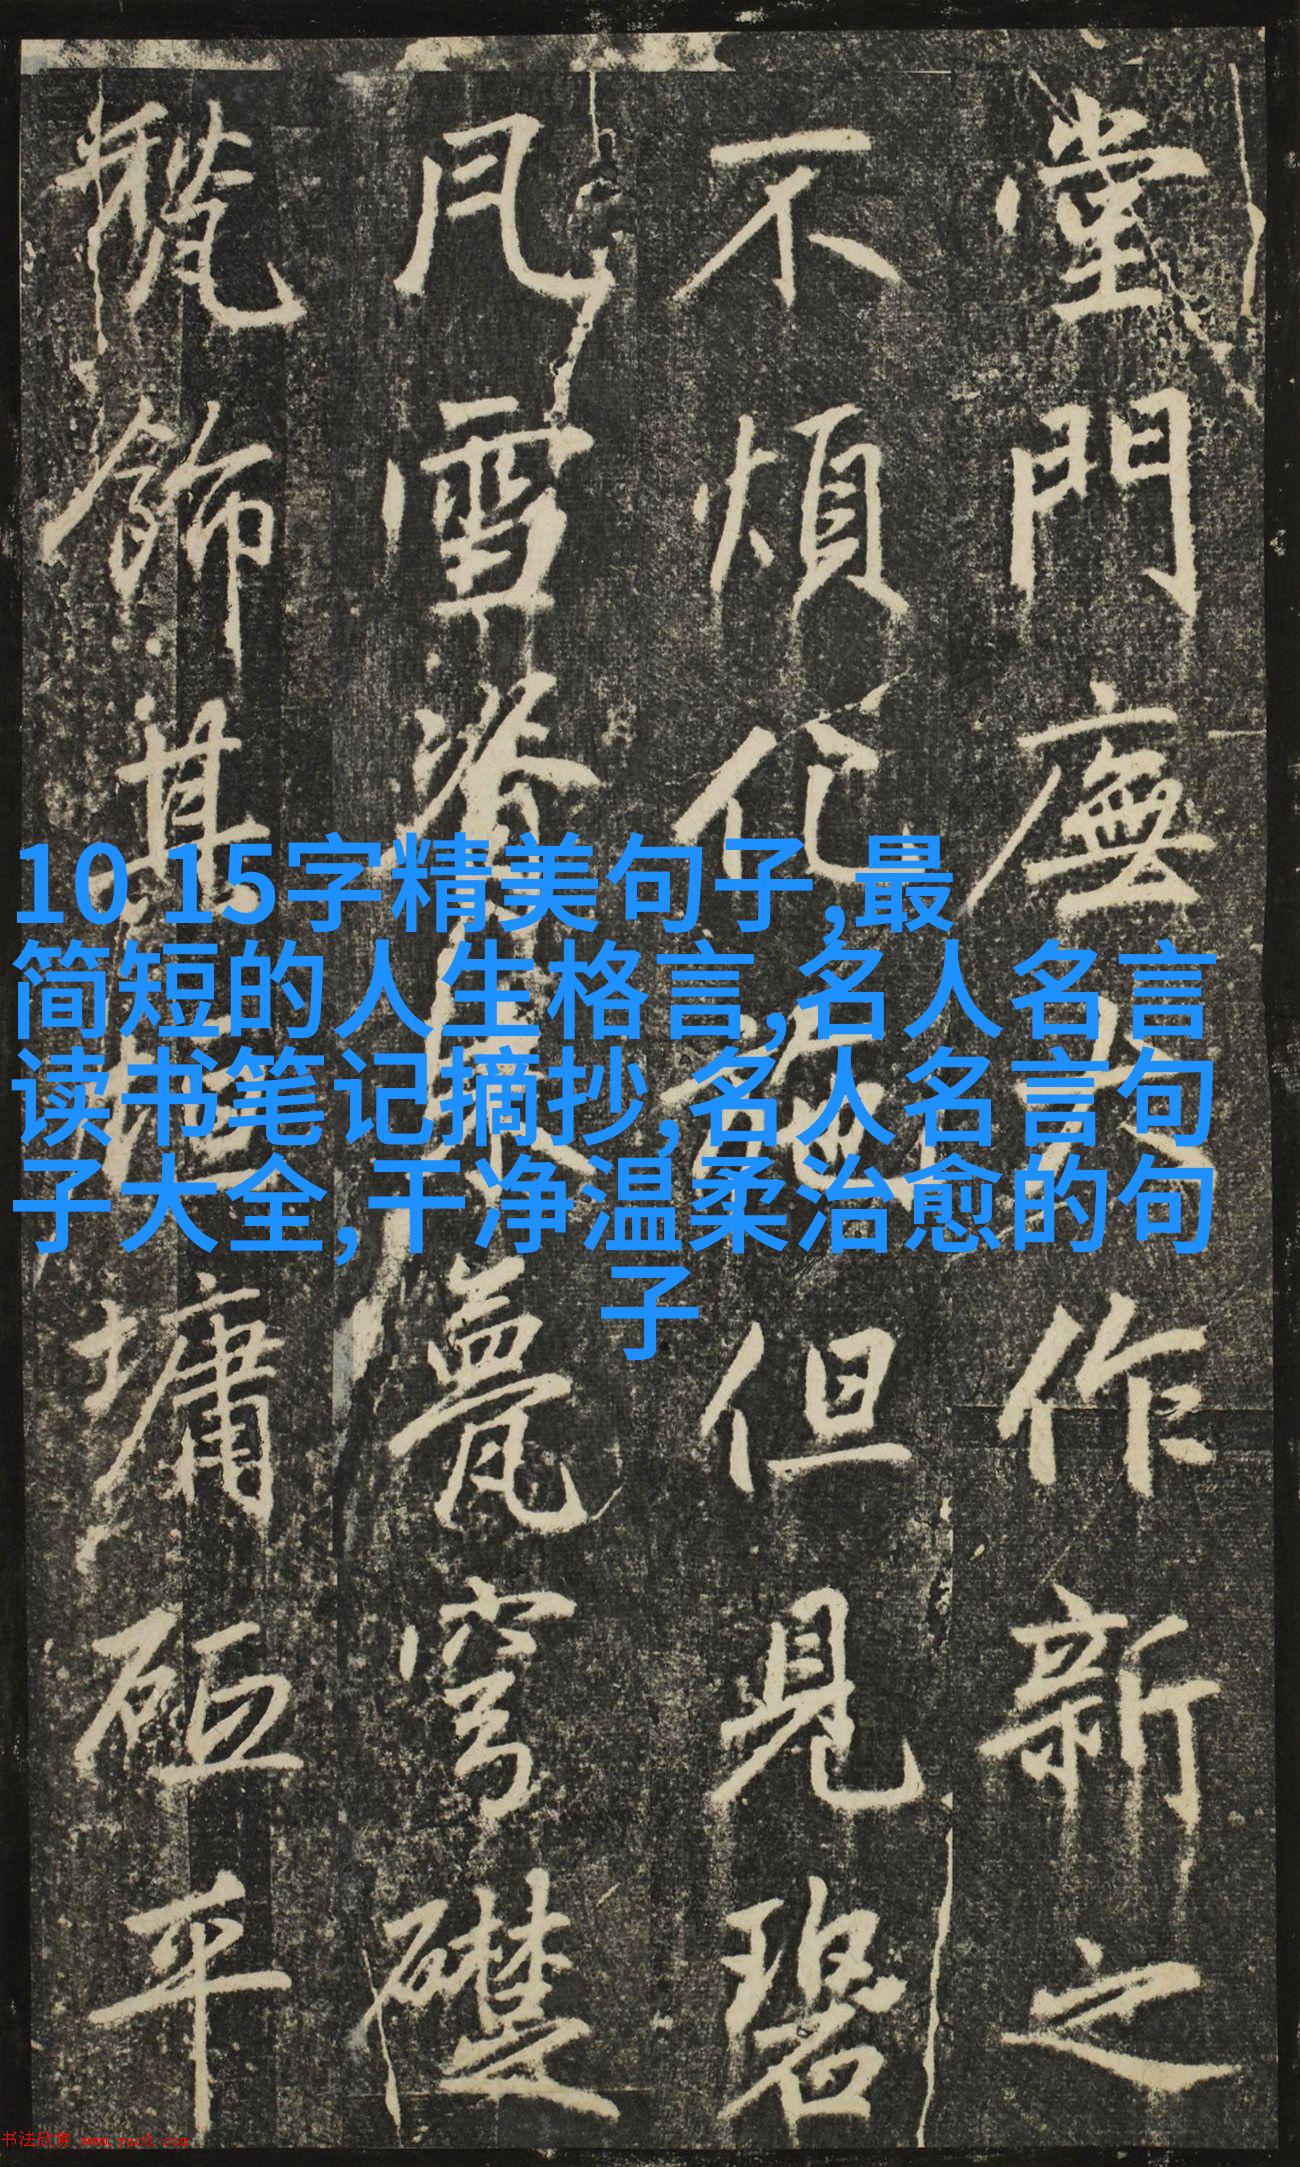 堂門廡作新之
不煩化施但見碧
雪甍穹礎
飾其墉平
10 15字精美句子,最
简短的人生格言,名人名言
读书笔记摘抄,名人名言句
子大全,干净温柔治愈的句
子
书法欣赏 www.yac8.com